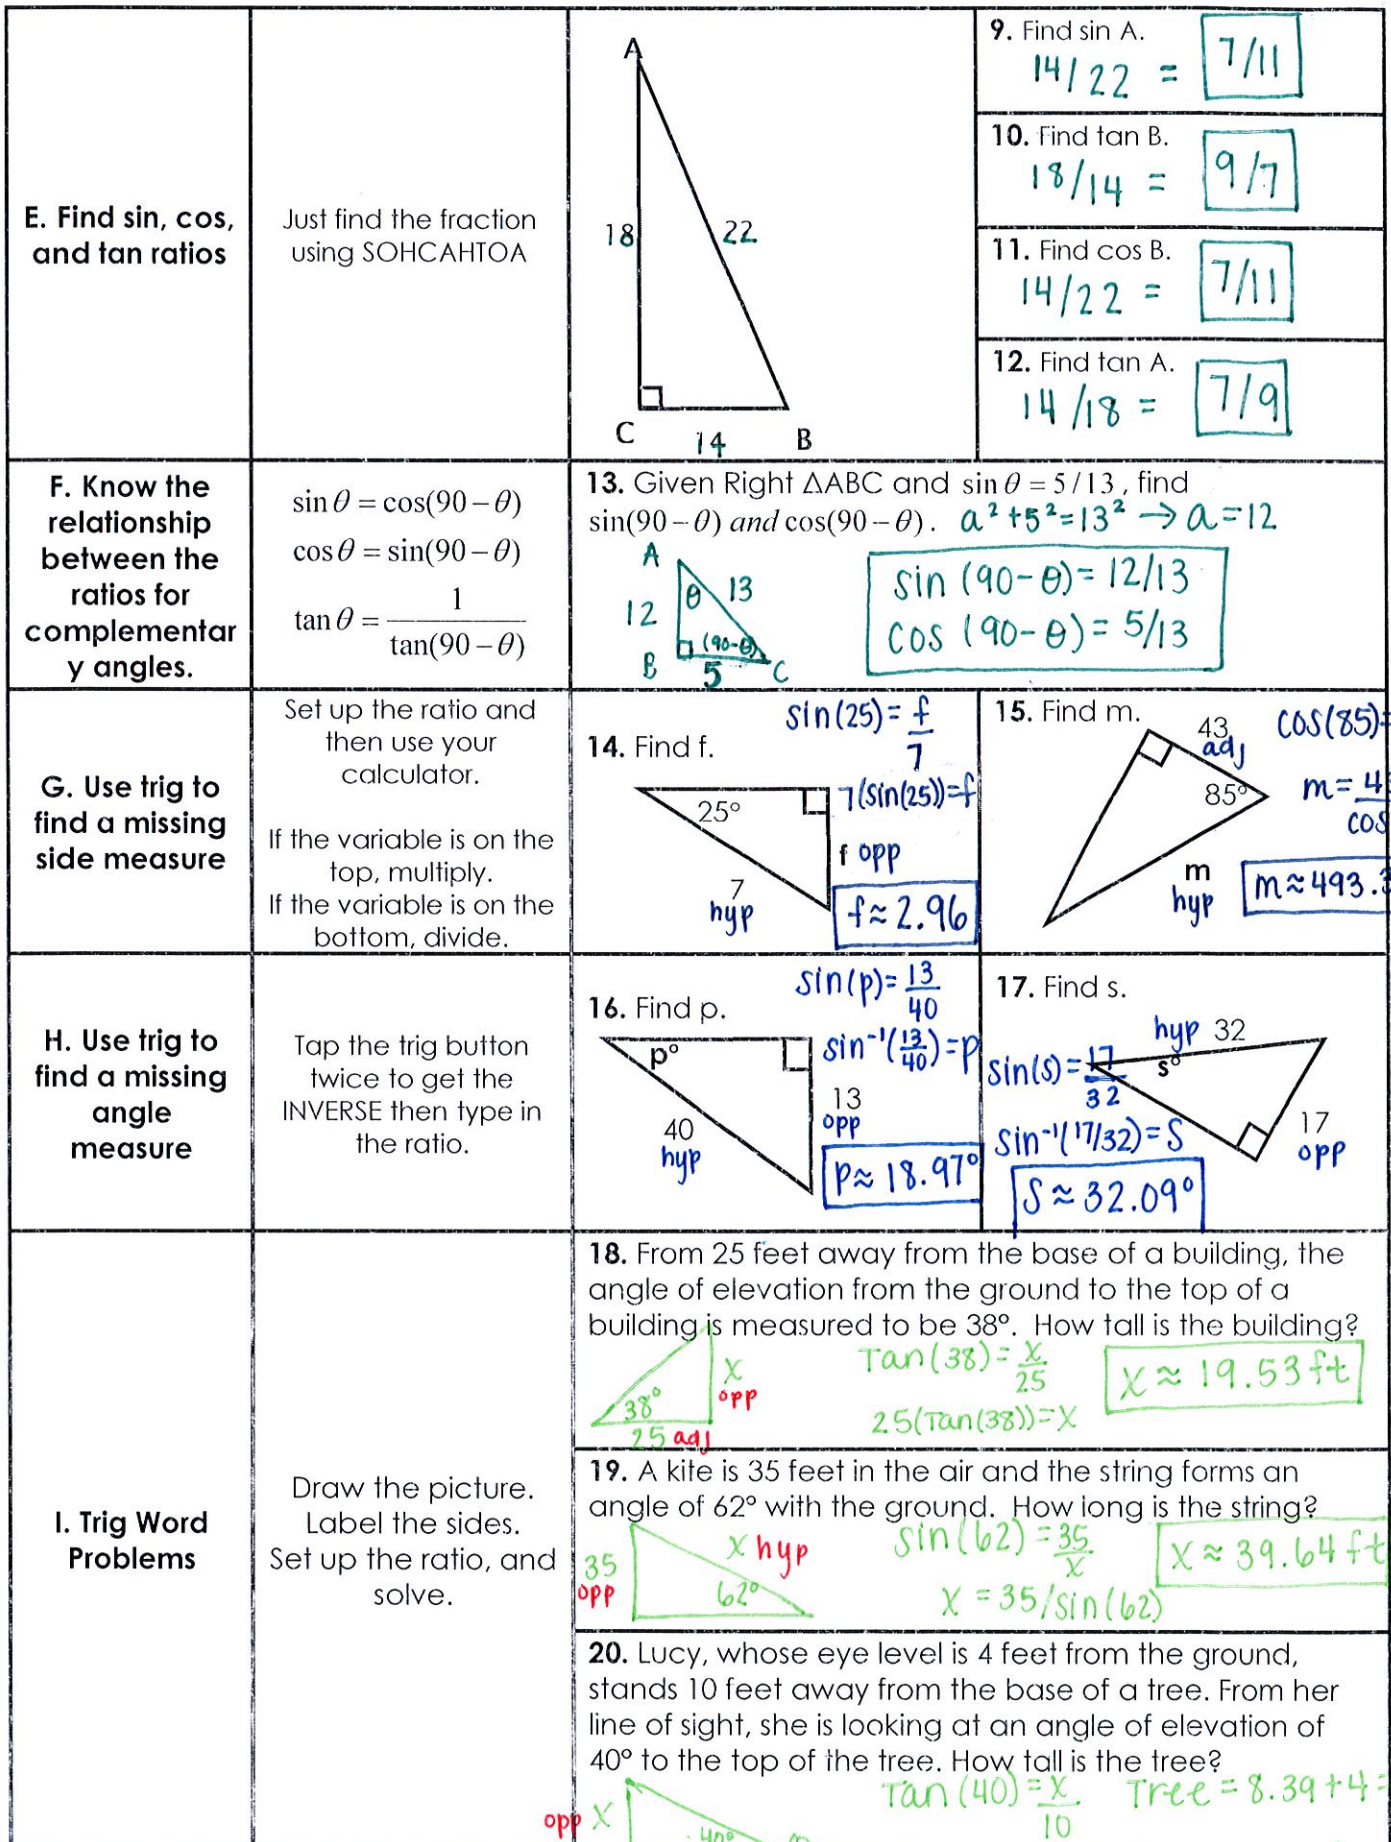 E. Find sin, cos,
and tan ratios
Just find the fraction
using SOHCAHTOA
A
18
22
C
14
B
9. Find sin A.
14/22 = 7/11
10. Find tan B.
18/14 = 9/7
11. Find cos B.
14/22 = 7/11
12. Find tan A.
14/18 = 7/9
F. Know the
relationship
between the
ratios for
complementar
y angles.
sin θ = cos(90 − θ)
cos θ = sin(90 − θ)
tan θ = 1 / tan(90 − θ)
13. Given Right △ABC and sin θ = 5 / 13 , find
sin(90 − θ) and cos(90 − θ). a² + 5² = 13² → a = 12
A
θ
13
12
(90-θ)
B
5
C
sin (90-θ) = 12/13
cos (90-θ) = 5/13
G. Use trig to
find a missing
side measure
Set up the ratio and
then use your
calculator.
If the variable is on the
top, multiply.
If the variable is on the
bottom, divide.
14. Find f.
sin(25) = f/7
7(sin(25)) = f
25°
f opp
7
hyp
f ≈ 2.96
15. Find m.
43
adj
cos(85) =
85°
m = 4
cos
m
hyp
m ≈ 493.3
H. Use trig to
find a missing
angle
measure
Tap the trig button
twice to get the
INVERSE then type in
the ratio.
16. Find p.
sin(p) = 13/40
sin⁻¹(13/40) = p
p°
13
opp
40
hyp
p ≈ 18.97°
17. Find s.
hyp 32
sin(s) = 17/32
s°
17
opp
sin⁻¹(17/32) = s
s ≈ 32.09°
I. Trig Word
Problems
Draw the picture.
Label the sides.
Set up the ratio, and
solve.
18. From 25 feet away from the base of a building, the
angle of elevation from the ground to the top of a
building is measured to be 38°. How tall is the building?
Tan(38) = x/25
x ≈ 19.53 ft
x
opp
38°
25 adj
25(Tan(38)) = x
19. A kite is 35 feet in the air and the string forms an
angle of 62° with the ground. How long is the string?
sin(62) = 35/x
x ≈ 39.64 ft
x hyp
35
opp
62°
x = 35/sin(62)
20. Lucy, whose eye level is 4 feet from the ground,
stands 10 feet away from the base of a tree. From her
line of sight, she is looking at an angle of elevation of
40° to the top of the tree. How tall is the tree?
Tan (40) = x/10
Tree = 8.39 + 4 =
opp x
40°